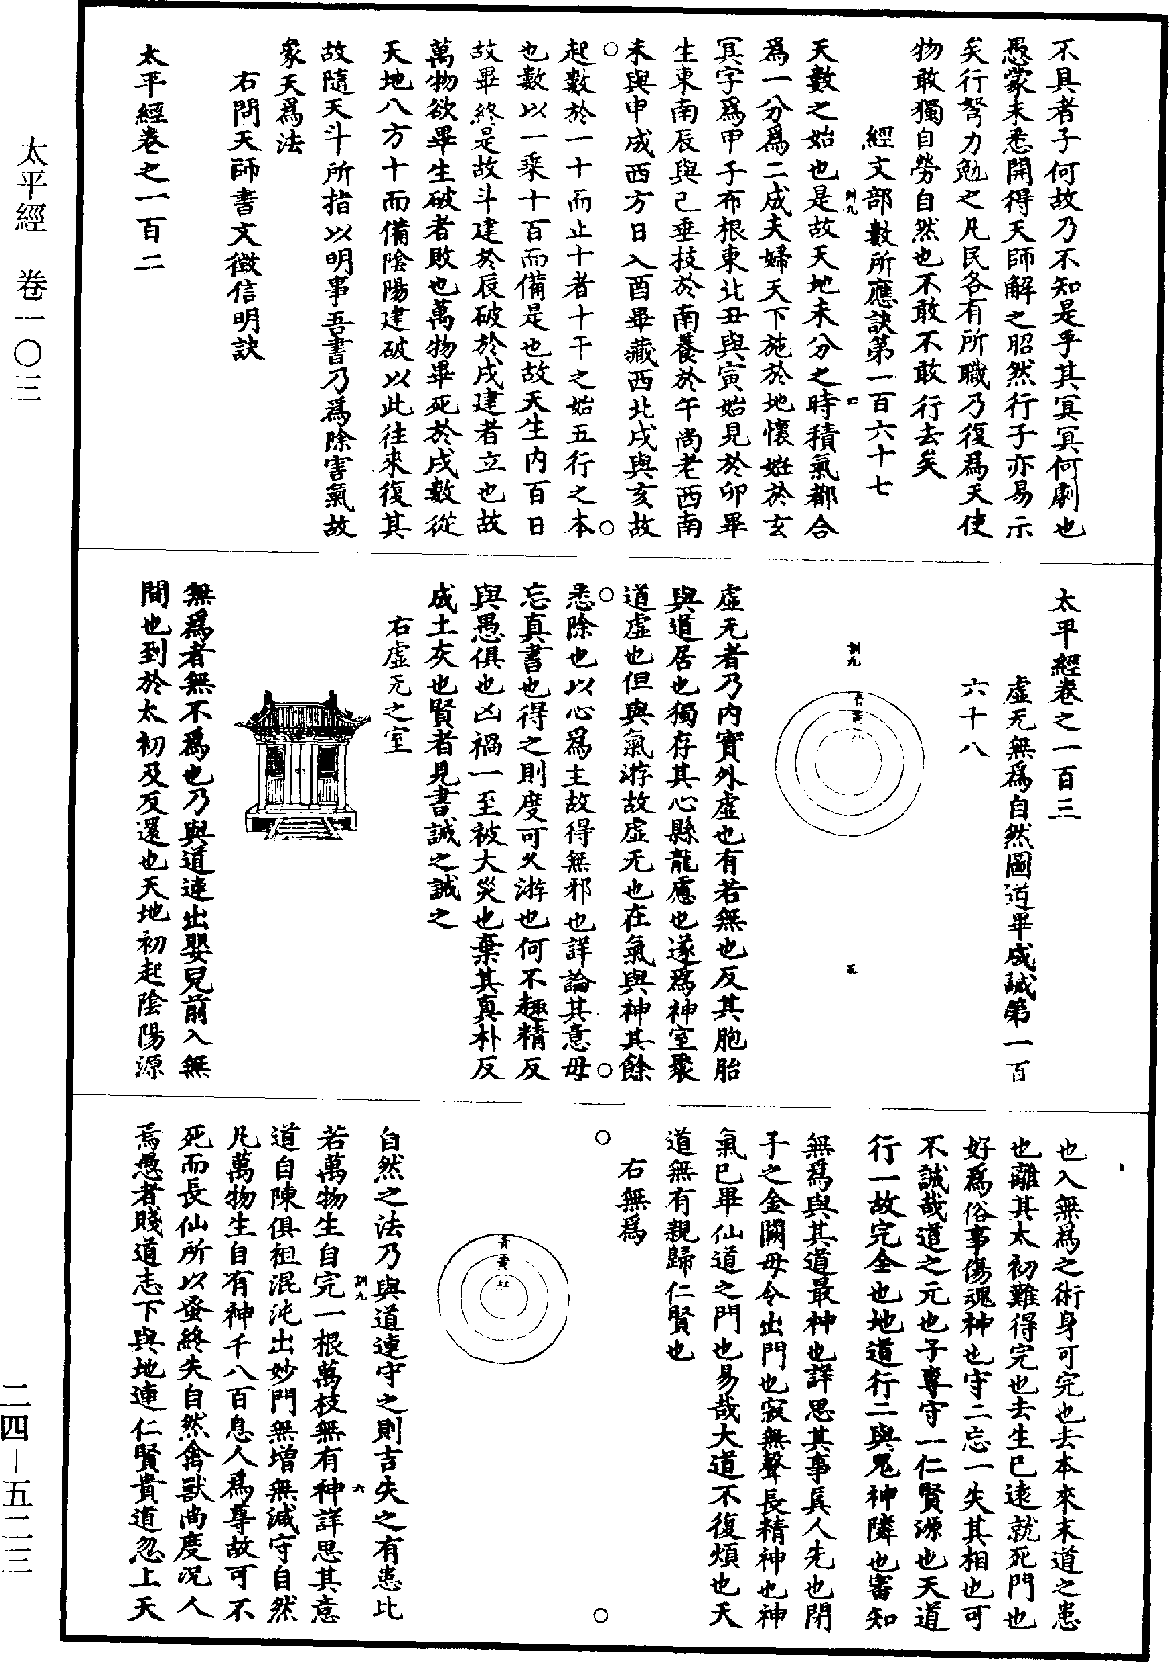 太平經　卷一〇三
二四—五二三
不具者子何故乃不知是乎其冥冥何劇也
愚蒙未悉開得天師解之昭然行子亦易示
矣行努力勉之凡民各有所職乃復為天使
物敢獨自勞自然也不敢不敢行去矣
經文部數所應訣第一百六十七
天數之始也是故天地未分之時積氣都合
為一分為二成夫婦天下施於地懷妊於玄
冥字為甲子布根東北丑與寅始見於卯畢
生東南辰與巳垂枝於南養於午尚老西南
未與申成西方日入酉畢藏西北戌與亥故
起數於一十而止十者十干之始五行之本
也數以一乘十百而備是也故天生內百日
故畢終是故斗建於辰破於戌建者立也故
萬物欲畢生破者敗也萬物畢死於戌數從
天地八方十而備陰陽建破以此往來復其
故隨天斗所指以明事吾書乃為除害氣故
象天為法
右問天師書文徵信明訣
太平經卷之一百二
太平經卷之一百三
虛无無為自然圖道畢成誡第一百
六十八
訓九
青黃
五
虛无者乃內實外虛也有若無也反其胞胎
與道居也獨存其心縣龍慮也遂為神室聚
道虛也但與氣游故虛无也在氣與神其餘
悉除也以心為主故得無邪也詳論其意毋
忘真書也得之則度可久游也何不趣精反
與愚俱也凶禍一至被大災也棄其真朴反
成土灰也賢者見書誡之誡之
右虛无之室
無為者無不為也乃與道連出嬰兒前入無
間也到於太初及反還也天地初起陰陽源
也入無為之術身可完也去本來末道之患
也離其太初難得完也去生已遠就死門也
好為俗事傷魂神也守二忘一失其相也可
不誡哉道之元也子專守一仁賢源也天道
行一故完全也地道行二與鬼神隣也審知
無為與其道最神也詳思其事真人先也閉
子之金闕毋令出門也寂無聲長精神也神
氣已畢仙道之門也易哉大道不復煩也天
道無有親歸仁賢也
右無為
青黃紅
自然之法乃與道連守之則吉失之有患比
訓九
六
若萬物生自完一根萬枝無有神詳思其意
道自陳俱祖混沌出妙門無增無減守自然
凡萬物生自有神千八百息人為尊故可不
死而長仙所以蚤終失自然禽獸尚度況人
焉愚者賤道志下與地連仁賢貴道忽上天